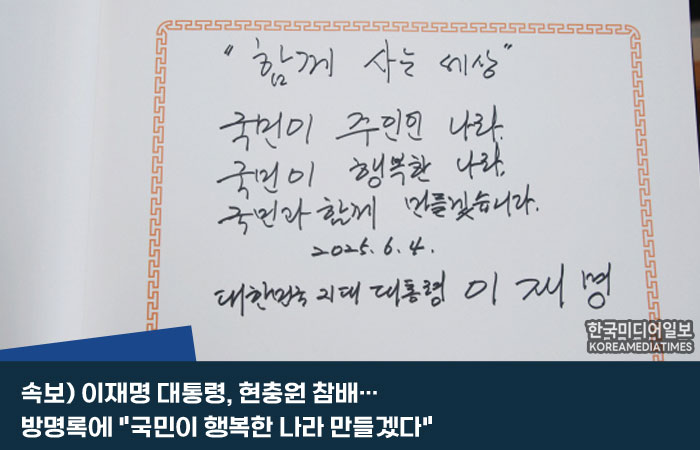 "함께 사는 세상"
국민이 주인인 나라,
국민이 행복한 나라,
국민과 함께 만들겠습니다.
2025. 6. 4.
대한민국 21대 대통령 이재명
한국미디어일보
KOREAMEDIATIMES
속보) 이재명 대통령, 현충원 참배…
방명록에 "국민이 행복한 나라 만들겠다"